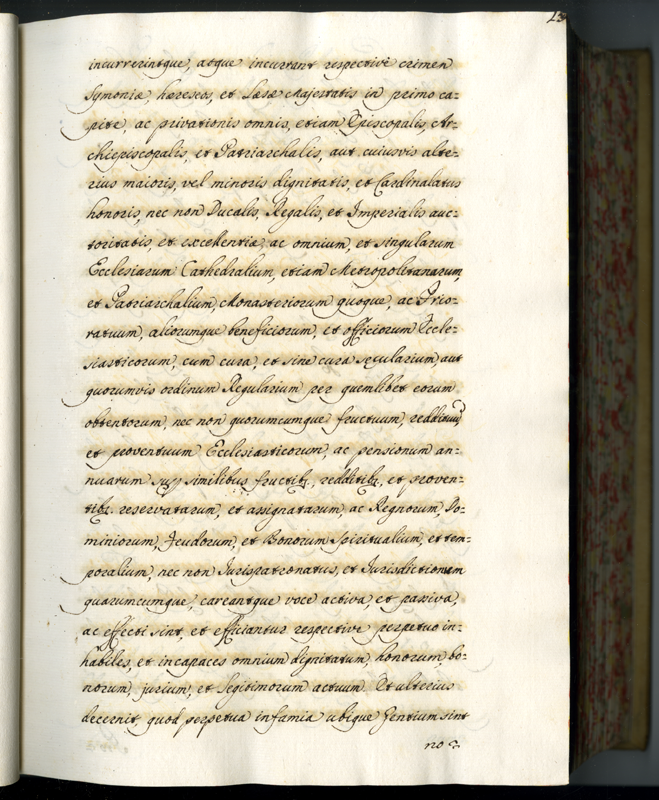 incurrerintque, atque incurrant respectivè crimen
Symoniæ, hæreseos, et Læsæ Majestatis in primo ca-
pite, ac privationis omnis, etiam Episcopalis, Ar-
chiepiscopalis, et Patriarchalis, aut cuiusvis alte-
rius maioris, vel minoris dignitatis, et Cardinalatus
honoris, nec non Ducalis, Regalis, et Imperialis auc-
toritatis, et excellentiæ, ac omnium, et singularum
Ecclesiarum Cathedralium, etiam Metropolitanarum,
et Patriarchalium, Monasteriorum quoque, ac Prio-
ratuum, aliorumque beneficiorum, et officiorum Eccle-
siasticorum, cum cura, et sine cura sęcularium, aut
quorumvis ordinum Regularium per quemlibet eorum
obtentorum, nec non quorumcumque fructuum, reddituũ
et proventuum Ecclesiasticorum, ac pensionum an-
nuarum sup similibus fructibq, redditibq, et proven-
tibq. reservatarum, et assignatarum, ac Regnorum, Do-
miniorum, Feudorum, et Bonorum Spiritualium, et tem-
poralium, nec non Jurispatronatus, et Jurisdictionum
quarumcumque, careantque voce activa, et passiva,
ac effecti sint, et efficiantur respectivè perpetuo in-
habiles, et incapaces omnium dignitatum, honorum, bo-
norum, jurium, et legitimorum actuum. Et ulterius
decernit, quod perpetua infamia ubique Gentium sint